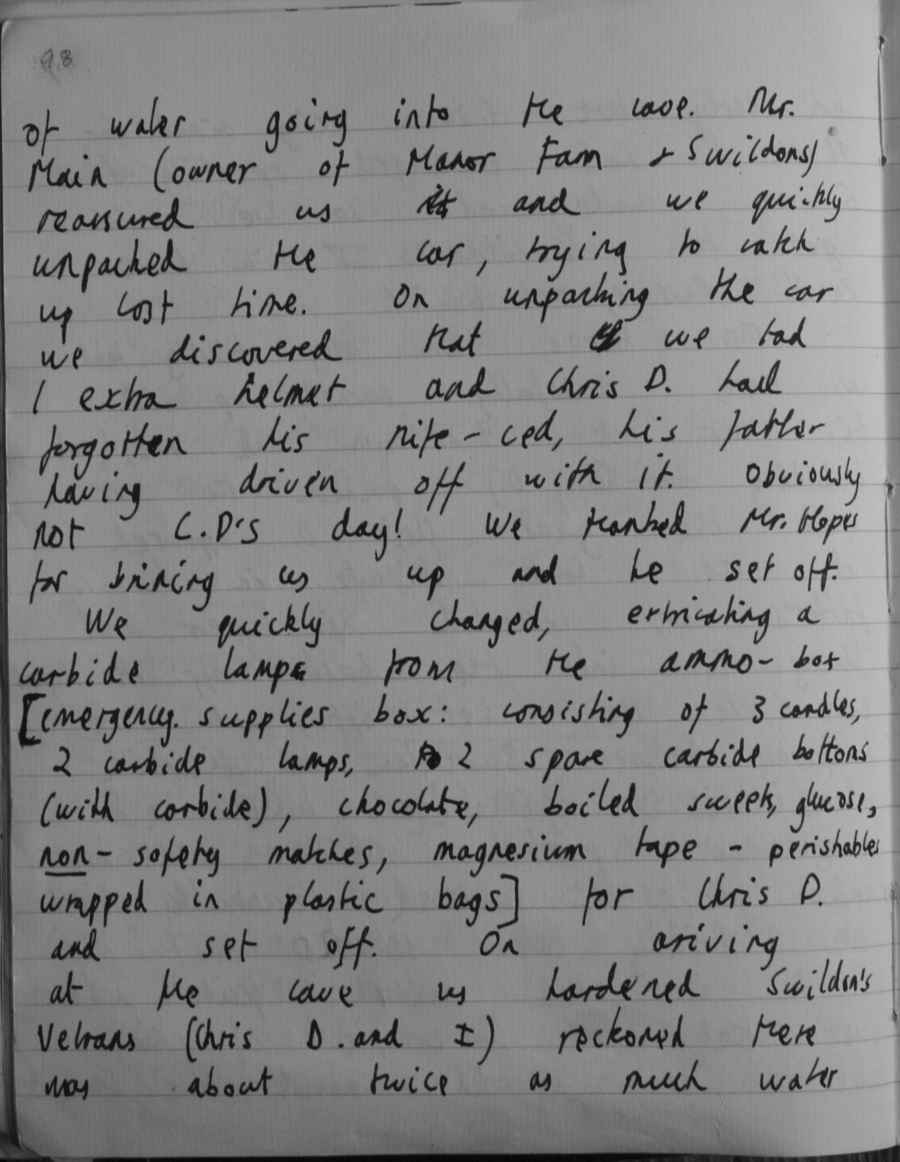 98
of water going into the cave. Mr.
Main (owner of Manor Farm & Swildons)
reassured us and we quickly
unpacked the car, trying to catch
up lost time. On unpacking the car
we discovered that we had
1 extra helmet and Chris D. had
forgotten his nife-ced, his father
having driven off with it. Obviously
not C.D's day! We thanked Mr. Hopes
for brining us up and he set off.
We quickly changed, extricating a
carbide lamp from the ammo-box
[emergency supplies box: consisting of 3 candles,
2 carbide lamps, 2 spare carbide bottoms
(with carbide), chocolate, boiled sweets, glucose,
non-safety matches, magnesium tape - perishables
wrapped in plastic bags] for Chris D.
and set off. On ariving
at the cave us hardened Swildon's
Vetrans (Chris D. and I) reckoned there
was about twice as much water